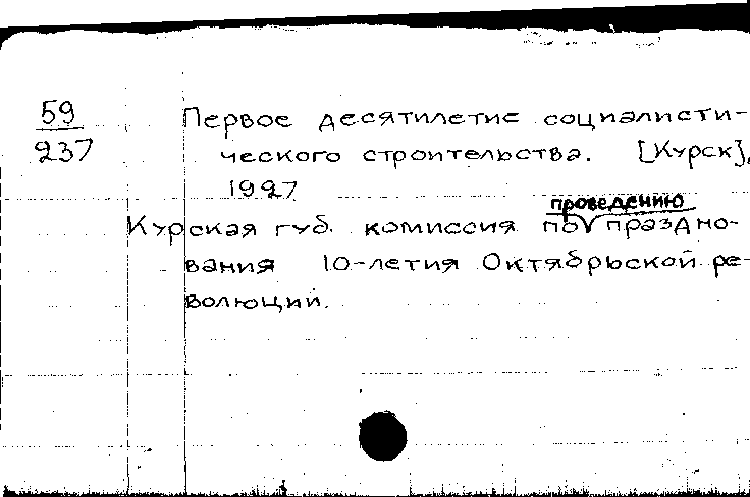 59
237
Первое десятилетие социалисти-
ческого строительства. [Курск],
1927
проведению
Курская губ. комиссия по праздно-
вания 10-летия Октябрьской ре-
волюции.